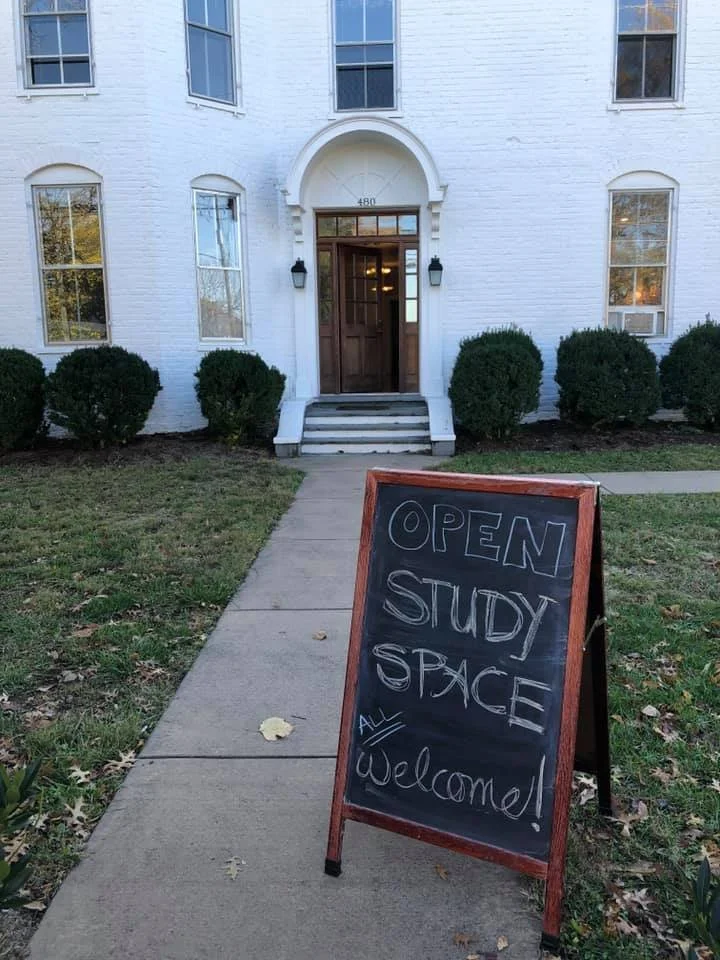 480
OPEN
STUDY
SPACE
ALL
Welcome!